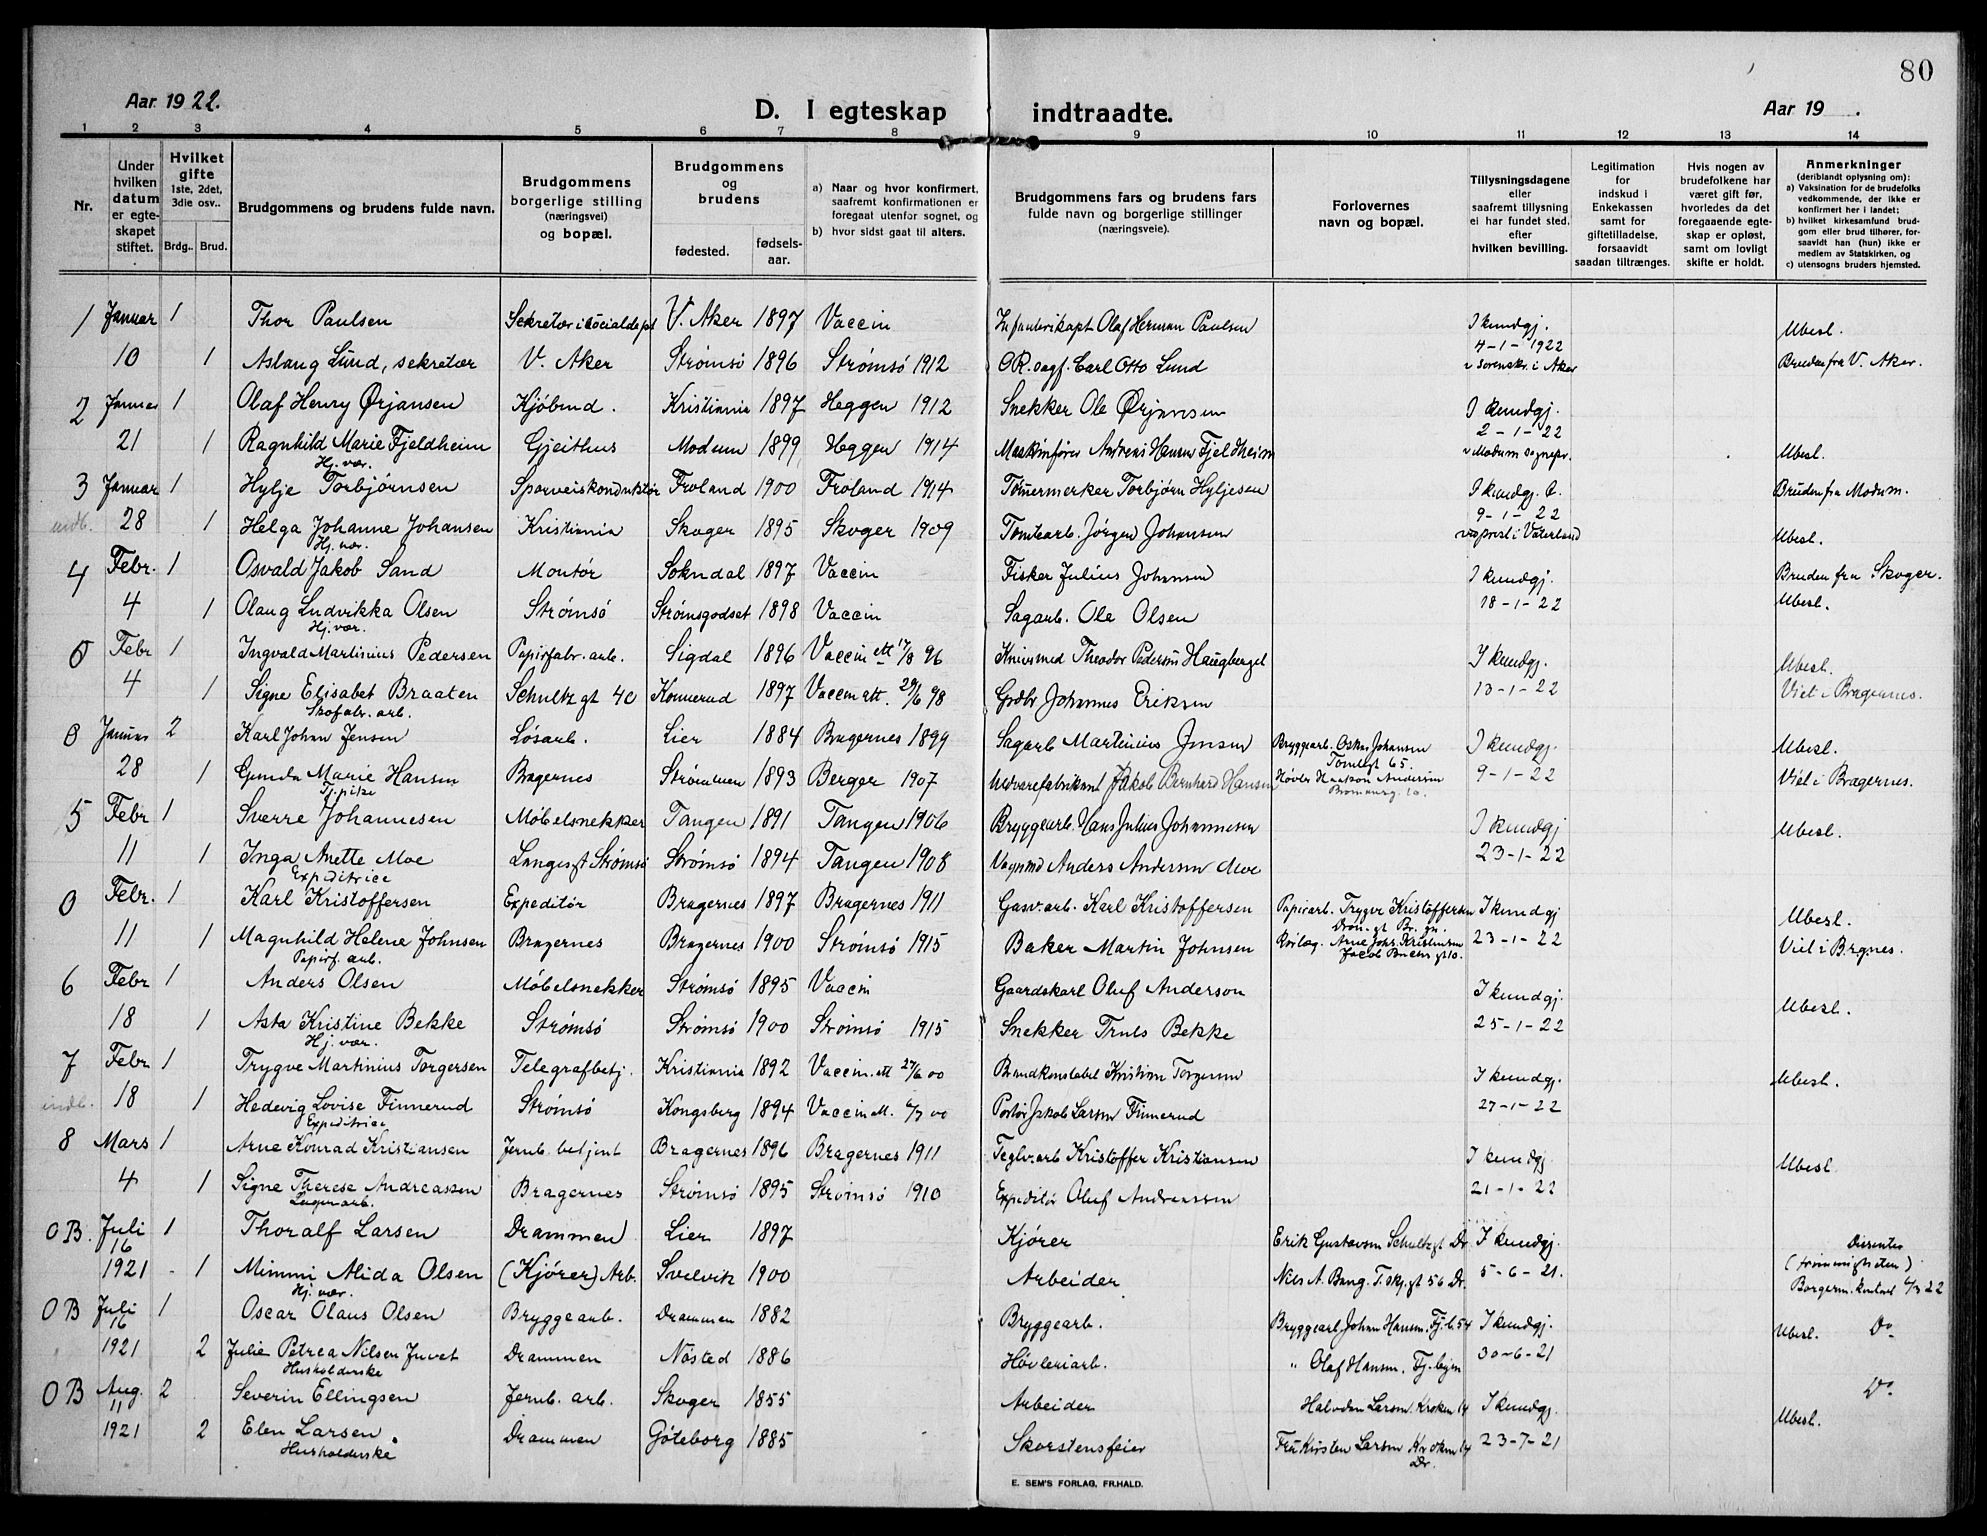 80
Aar 1922.
D. I egteskap indtraadte.
Aar 19 .
1 2 3 4 5 6 7 8 9 10 11 12 13 14
Nr.
Under hvilken datum er egteskapet stiftet.
Hvilket gifte
1ste, 2det, 3die osv..
Brdg.. Brud.
Brudgommens og brudens fulde navn.
Brudgommens borgerlige stilling (næringsvei) og bopæl.
Brudgommens og brudens
fødested. fødsels-aar.
a) Naar og hvor konfirmert, saafremt konfirmationen er foregaat utenfor sognet, og
b) hvor sidst gaat til alters.
Brudgommens fars og brudens fars fulde navn og borgerlige stillinger (næringsveie).
Forlovernes navn og bopæl.
Tillysningsdagene eller saafremt tillysning ei har fundet sted, efter hvilken bevilling.
Legitimation for indskud i Enkekassen samt for giftetilladelse, forsaavidt saadan tiltrænges.
Hvis nogen av brudefolkene har været gift før, hvorledes da det foregaaende egteskap er opløst, samt om lovligt skifte er holdt.
Anmerkninger (deriblandt oplysning om):
a) Vaksination for de brudefolks vedkommende, der ikke er konfirmert her i landet;
b) hvilket kirkesamfund brudgom eller brud tilhører, forsaavidt han (hun) ikke er medlem av Statskirken, og
c) utensogns bruders hjemsted.
1 Januar 1 Thor Paulsen Sekretær i socialdept V. Aker 1897 Vaccin Infanterikapt Olaf Herman Paulsen I kundgj. 4-1-1922 Ubesl.
10 1 Aslaug Lund, sekretær V. Aker Strømsø 1896 Strømsø 1912 OR. sagf. Carl Otto Lund v sorenskr. i Aker Bruden fra V. Aker.
2 Januar 1 Olaf Henry Ørjansen Kjøbmd. Kristiania 1897 Heggen 1912 Snekker Ole Ørjansen I kundgj. 2-1-22
21 1 Ragnhild Marie Fjeldheim Gjeithus Modum 1899 Heggen 1914 Maskinfører Andreas Hansen Fjeldheim v Modum sognepr. Ubesl.
Hj. vær.
3 Januar 1 Hylje Torbjørnsen Sporveiskonduktør Froland 1900 Froland 1914 Tømermerker Torbjørn Hyljesen I kundgj. 9-1-22 Bruden fra Modum.
indb. 28 1 Helga Johanne Johansen Kristiania Skoger 1895 Skoger 1909 Tomtearb. Jørgen Johansen v sprest i Vaterland Ubesl.
Hj. vær.
4 Febr. 1 Osvald Jakob Sand Montør Sokndal 1897 Vaccin Fisker Julius Johansen I kundgj. Bruden fra Skoger.
4 1 Olaug Ludvikka Olsen Strømsø Strømsgodset 1898 Vaccin Sagarb. Ole Olsen 18-1-22 Ubesl.
Hj. vær.
0 Febr 1 Ingvald Martinius Pedersen Papirfabr. arb. Sigdal 1896 Vaccin att 17/8 96 Knivsmed Theodor Pedersen Haugberget I kundgj. Ubesl.
4 1 Signe Elisabet Braaten Schultz gt 40 Konnerud 1897 Vaccin att. 29/6 98 Grdbr Johannes Eriksen 13-1-22 Viet i Bragernes.
Skofabr. arb.
0 Januar 2 Karl Johan Jensen Løsarb. Lier 1884 Bragernes 1899 Sagarb Martinius Jensen Bryggearb. Oskar Johansen Tomtegt 65. I kundgj. Ubesl.
28 1 Gunda Marie Hansen Bragernes Strømmen 1893 Berger 1907 Uldvarefabrikant Jakob Bernhard Hansen Høvler Haakon Andersen 9-1-22 Viet i Bragernes.
Tj. pike
5 Febr 1 Sverre Johannesen Møbelsnekker Tangen 1891 Tangen 1906 Bryggearb. Hans Julius Johannesen I kundgj Ubesl.
11 1 Inga Anette Moe Langesgt Strømsø Strømsø 1894 Tangen 1908 Vognmd Anders Andersen Moe 23-1-22
Expeditrice
0 Febr. 1 Karl Kristoffersen Expeditør Bragernes 1897 Bragernes 1911 Gasv. arb. Karl Kristoffersen Papirarb. Trygve Kristoffersen I kundgj Ubesl.
11 1 Magnhild Helene Johnsen Bragernes Bragernes 1900 Strømsø 1915 Baker Martin Johnsen Rørlæg. Arne Johs. Kristiansen 23-1-22 Viet i Brgnes.
Papirf. arb.
6 Febr 1 Anders Olsen Møbelsnekker Strømsø 1895 Vaccin Gaardskarl Oluf Anderson I kundgj.
18 1 Asta Kristine Bekke Strømsø Strømsø 1900 Strømsø 1915 Snekker Truls Bekke 25-1-22 Ubesl.
Hj. vær.
7 Febr 1 Trygve Martinius Torgersen Telegrafbetj. Kristiania 1892 Vaccin. att 27/6 00 Brandkonstabel Kristian Torgersen I kundgj. Ubesl.
indb. 18 1 Hedevig Lovise Finnerud Strømsø Kongsberg 1894 Vaccin att. 6/7 00 Portør Jakob Larsen Finnerud 27-1-22
Expeditrice
8 Mars 1 Arne Konrad Kristiansen Jernb. betjent Bragernes 1896 Bragernes 1911 Teglv. arb Kristoffer Kristiansen I kundgj
4 1 Signe Therese Andreassen Bragernes Strømsø 1895 Strømsø 1910 Expeditør Oluf Andreassen 21-1-22 Ubesl.
Lagerarb.
O B. Juli 16 1 Thoralf Larsen Drammen Lier 1897 Kjører Erik Gustavsen Schultzgt Dr I kundgj.
1921 - 1 Mimmi Alida Olsen (Kjører) Arb. Svelvik 1900 Arbeider Nils A. Bang. T. skj. gt 56 Dr. 5-6-21. Borgerm. kontoret
Hj. vær.
O B Juli 16 1 Oscar Olaus Olsen Bryggearb. Drammen 1882 Bryggearb. Bryggearb Johan Hansen. Tj. b. 54 I kundgj. Ubesl. Do
1921 2 Julie Petrea Nilsen Juvet Drammen Nøsted 1886 Høvleriarb. " Olaf Hansen. 30-6-21
Husholderske
O B Aug. 11 2 Severin Ellingsen Jernb. arb. Skoger 1855 Arbeider Halvdan Larsen. Kroken 14 I kundgj. Do
1921 2 Elen Larsen Drammen Göteborg 1885 Skorstensfeier Fru Kirsten Larsen Kroken 14 Dr. 23-7-21 Ubesl.
Husholderske
E. SEM'S FORLAG, FR.HALD.